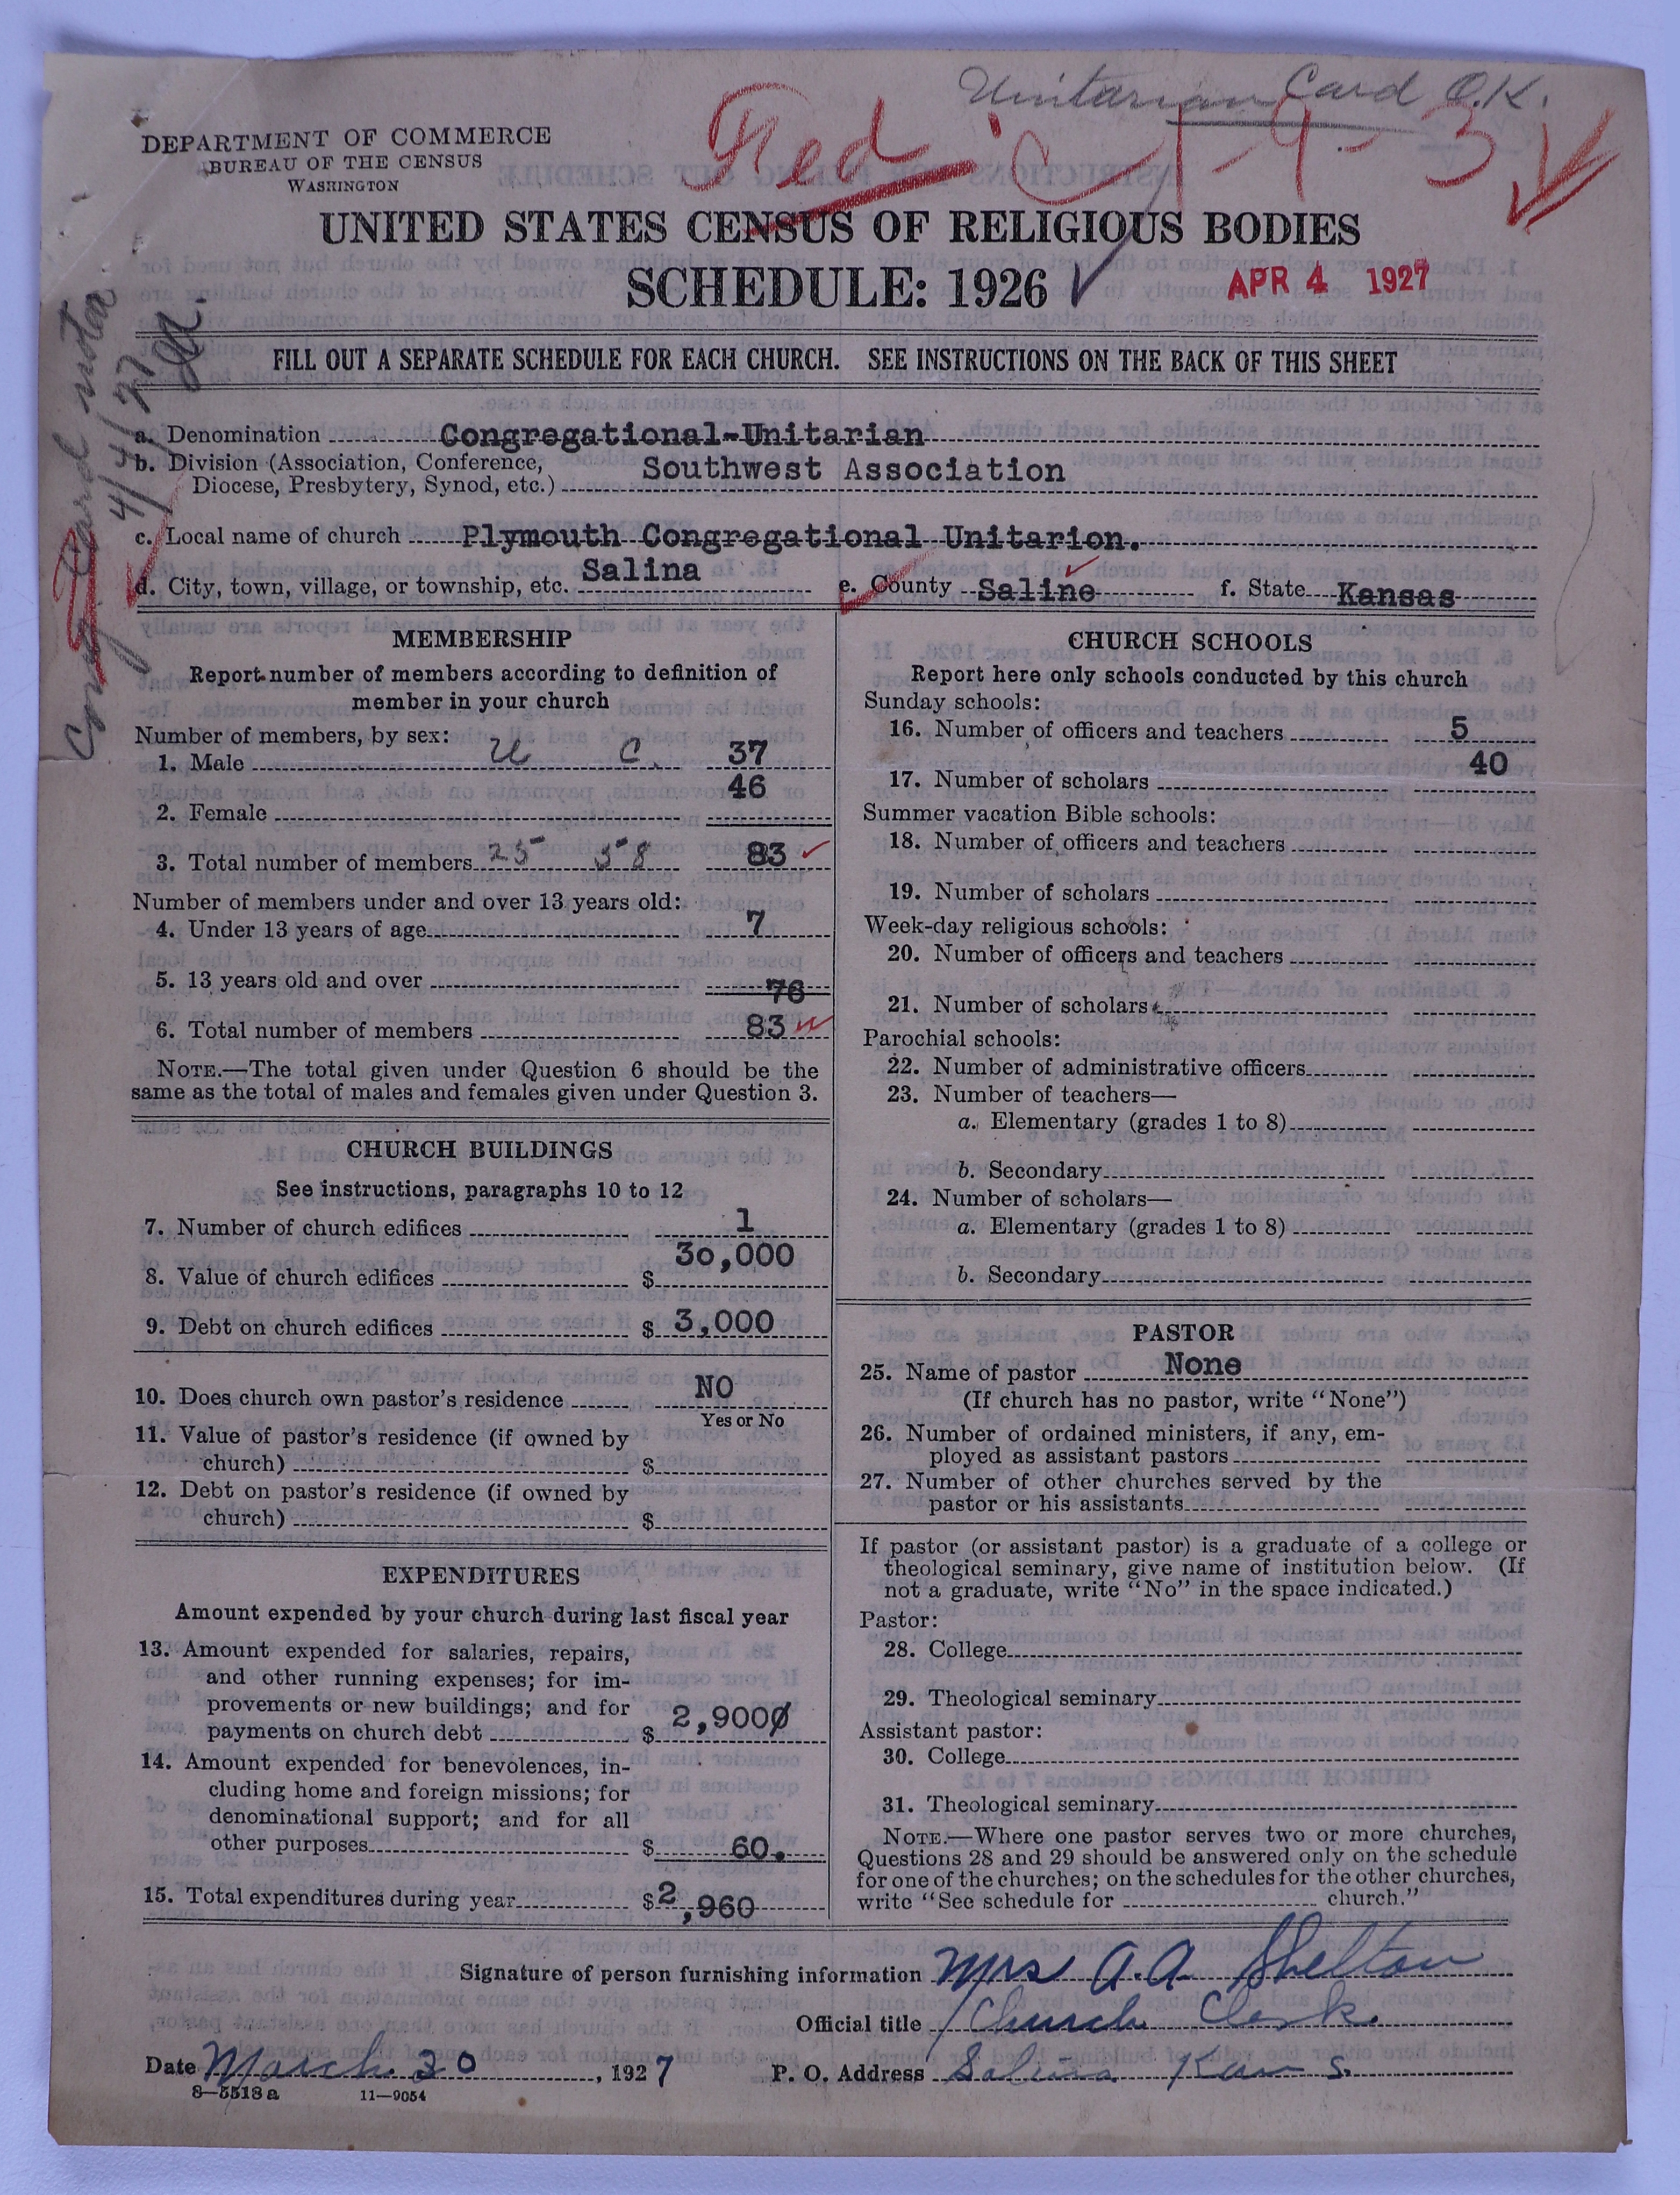 Unitarian Card O.K.
DEPARTMENT OF COMMERCE
BUREAU OF THE CENSUS
WASHINGTON
Red C 1-9-3
UNITED STATES CENSUS OF RELIGIOUS BODIES
SCHEDULE: 1926
APR 4 1927
FILL OUT A SEPARATE SCHEDULE FOR EACH CHURCH. SEE INSTRUCTIONS ON THE BACK OF THIS SHEET
Cong Card noted
4/4/27
a. Denomination Congregational-Unitarian
b. Division (Association, Conference, Southwest Association
Diocese, Presbytery, Synod, etc.)
c. Local name of church Plymouth Congregational Unitarion.
d. City, town, village, or township, etc. Salina e. County Saline f. State Kansas
MEMBERSHIP
Report number of members according to definition of
member in your church
Number of members, by sex:
1. Male U C. 37
2. Female 46
3. Total number of members 25 58 83
Number of members under and over 13 years old:
4. Under 13 years of age 7
5. 13 years old and over 76
6. Total number of members 83
NOTE.—The total given under Question 6 should be the
same as the total of males and females given under Question 3.
CHURCH BUILDINGS
See instructions, paragraphs 10 to 12
7. Number of church edifices 1
8. Value of church edifices $ 30,000
9. Debt on church edifices $ 3,000
10. Does church own pastor's residence NO
Yes or No
11. Value of pastor's residence (if owned by
church) $
12. Debt on pastor's residence (if owned by
church) $
EXPENDITURES
Amount expended by your church during last fiscal year
13. Amount expended for salaries, repairs,
and other running expenses; for im-
provements or new buildings; and for
payments on church debt $ 2,9000
14. Amount expended for benevolences, in-
cluding home and foreign missions; for
denominational support; and for all
other purposes $ 60.
15. Total expenditures during year $2,960
CHURCH SCHOOLS
Report here only schools conducted by this church
Sunday schools:
16. Number of officers and teachers 5
17. Number of scholars 40
Summer vacation Bible schools:
18. Number of officers and teachers
19. Number of scholars
Week-day religious schools:
20. Number of officers and teachers
21. Number of scholars
Parochial schools:
22. Number of administrative officers
23. Number of teachers—
a. Elementary (grades 1 to 8)
b. Secondary
24. Number of scholars—
a. Elementary (grades 1 to 8)
b. Secondary
PASTOR
25. Name of pastor None
(If church has no pastor, write "None")
26. Number of ordained ministers, if any, em-
ployed as assistant pastors
27. Number of other churches served by the
pastor or his assistants
If pastor (or assistant pastor) is a graduate of a college or
theological seminary, give name of institution below. (If
not a graduate, write "No" in the space indicated.)
Pastor:
28. College
29. Theological seminary
Assistant pastor:
30. College
31. Theological seminary
NOTE.—Where one pastor serves two or more churches,
Questions 28 and 29 should be answered only on the schedule
for one of the churches; on the schedules for the other churches,
write "See schedule for church."
Signature of person furnishing information Mrs A.A. Shelton
Official title Church Clerk
Date March 20, 1927 P. O. Address Salina Kans.
8—5518a 11—9054